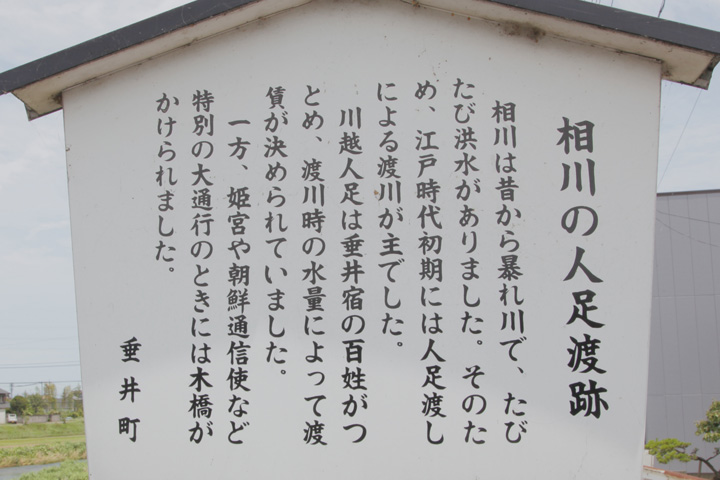 相川の人足渡跡
相川は昔から暴れ川で、たび
たび洪水がありました。そのた
め、江戸時代初期には人足渡し
による渡川が主でした。
川越人足は垂井宿の百姓がつ
とめ、渡川時の水量によって渡
賃が決められていました。
一方、姫宮や朝鮮通信使など
特別の大通行のときには木橋が
かけられました。
垂井町